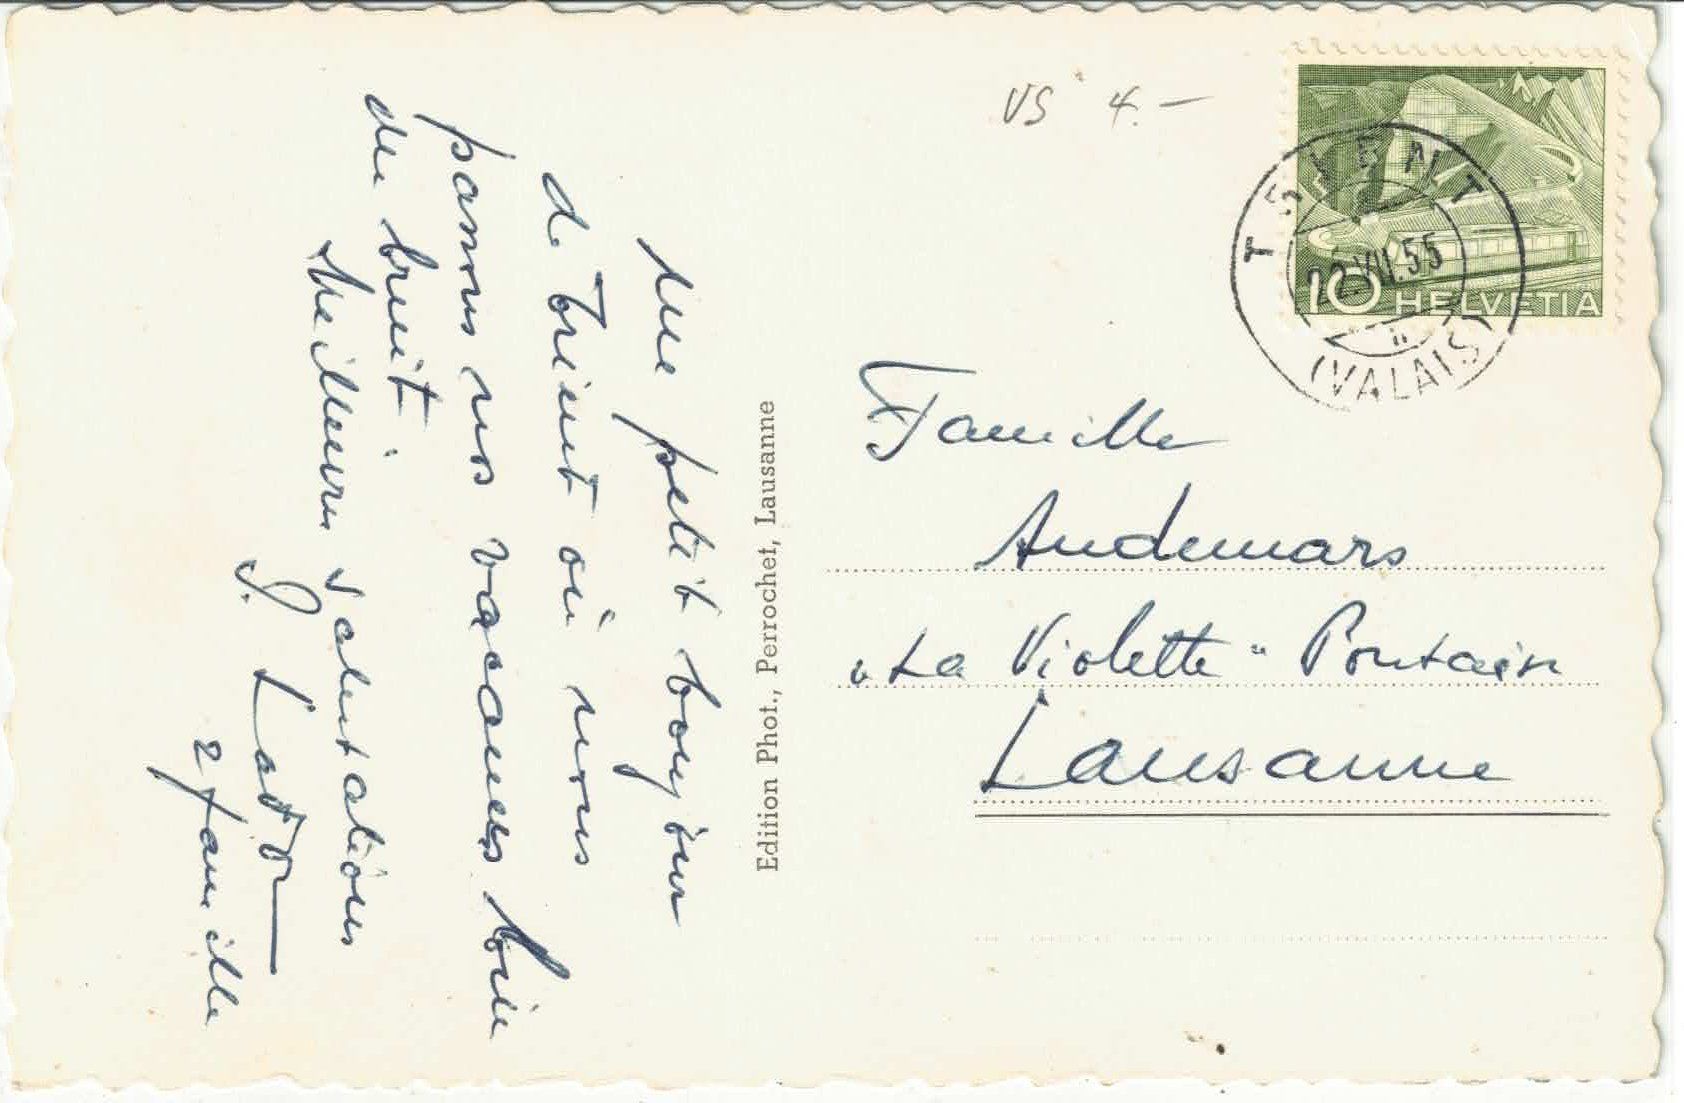 Un petit bonjour
de Trient où nous
passons nos vacances loin
du bruit.
Meilleures salutations
& famille
Edition Phot., Perrochet, Lausanne
VS 4.–
TRIENT
22.VII.55
(VALAIS)
10 HELVETIA
Famille
Audemars
„La Violette" Pontaise
Lausanne